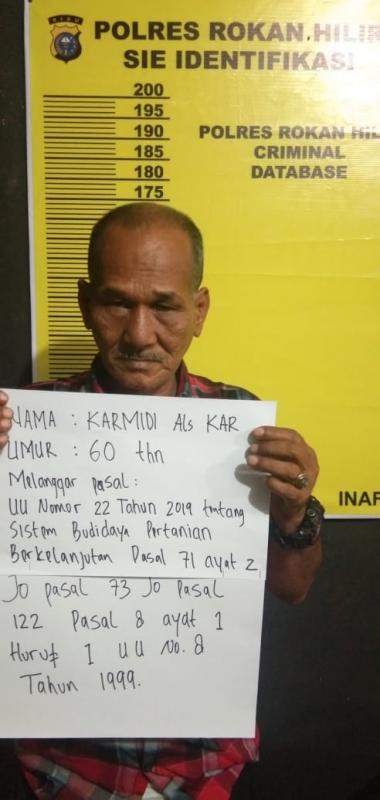 RIAU
POLRES ROKAN HILIR
SIE IDENTIFIKASI
200
195
190
185
180
175
POLRES ROKAN HIL
CRIMINAL
DATABASE
INAF
NAMA : KARMIDI Als KAR
UMUR : 60 thn
Melanggar pasal :
UU Nomor 22 Tahun 2019 tentang
Sistem Budidaya Pertanian
Berkelanjutan Pasal 71 ayat 2
Jo pasal 73 Jo Pasal
122 Pasal 8 ayat 1
Huruf I UU No. 8
Tahun 1999.